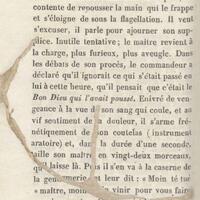 contente de repousser la main qui le frappe
et s'éloigne de sous la flagellation. Il veut
s'excuser, il parle pour ajourner son sup-
plice. Inutile tentative; le maître revient à
la charge, plus furieux, plus aveugle. Dans
les débats de son procès, le commandeur a
déclaré qu'il ignorait ce qui s'était passé en
lui à cette heure, qu'il pensait que c'était le
Bon Dieu qui l'avait poussé. Enivré de ven-
geance à la vue de son sang qui coule, et au
vif sentiment de la douleur, il s'arme fré-
nétiquement de son coutelas (instrument
aratoire) et, dans la durée d'une seconde,
taille son maître en vingt-deux morceaux,
qu'il laisse là. Puis il s'en va à la caserne de
la gendarmerie et leur dit: « Moin té tué
« maître, moin vinir pour vous faire